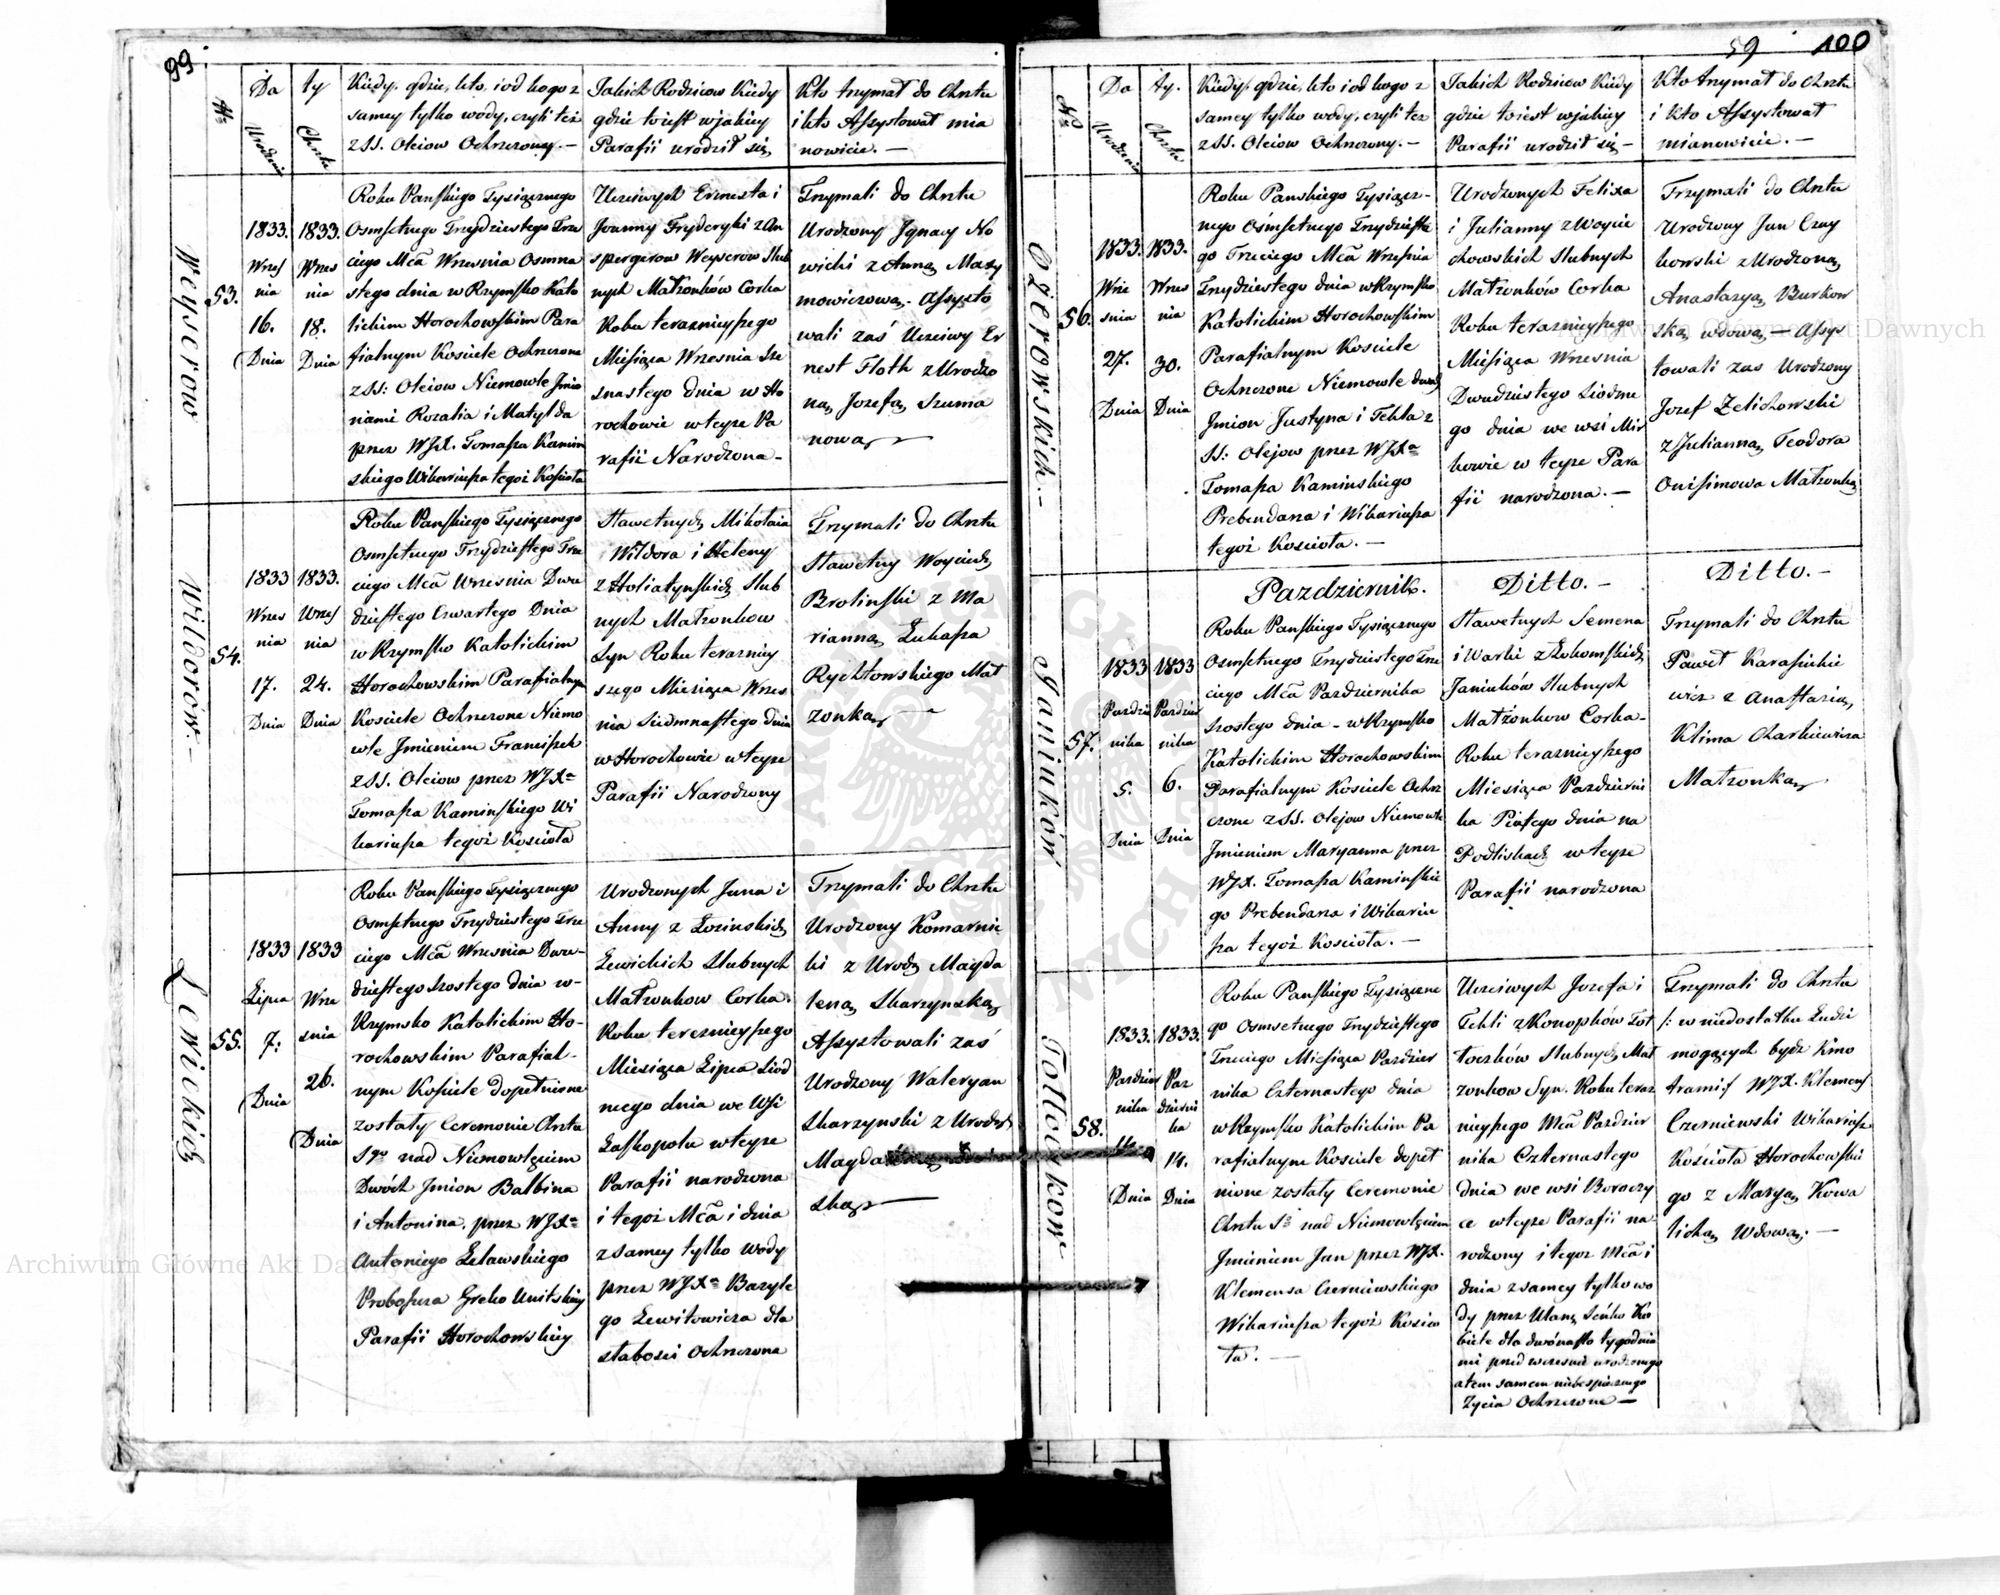 99
Da
ty
№
Urodzenia
Chrztu
Kiedy, gdzie, kto, i od kogo z
samey tylko wody, czyli też
z SS. Oleiow Ochrzczony. —
Jakich Rodzicow Kiedy
gdzie to iest w jakiey
Parafii urodził się
Kto trzymał do Chrztu
i kto Assystował mia
nowicie. —
Weyserow
53.
1833.
Wrześ
nia
16.
Dnia
1833.
Wrześ
nia
18.
Dnia
Roku Pańskiego Tysiącznego
Osmsetnego Trzydziestego Trze
ciego Mca Wrzesnia Osmna
stego dnia w Rzymsko Kato
lickim Horochowskim Para
fialnym Kosciele Ochrzczone
z SS: Oleiow Niemowle Jmio
nami Rozalia i Matylda
przez WJX. Tomasza Kamin
skiego Wikariusza tegoż Kościoła
Uczciwych Ernesta i
Joanny Fryderyki z An
spergerow Weyserow Slub
nych Małżonków Corka
Roku terazniejszego
Miesiąca Wrzesnia Sze
snastego dnia w Ho
rochowie w teyże Pa
rafii Narodzona —
Trzymali do Chrztu
Urodzony Jgnacy No
wicki z Anną Mazy
mowiczową. - Assysto
wali zaś Uczciwy Er
nest Floth z Urodzo
ną Jozefą Szuma
nową
Wildorów. —
54.
1833
Wrześ
nia
17.
Dnia
1833.
Wrześ
nia
24.
Dnia
Roku Pańskiego Tysiącznego
Osmsetnego Trzydziestego Trze
ciego Mca Wrzesnia Dwu
dziestego Czwartego Dnia
w Rzymsko Katolickim
Horochowskim Parafialnym
Kosciele Ochrzczone Niemo
wle Jmieniem Franciszek
z SS. Oleiow przez WJXa
Tomasza Kaminskiego Wi
kariusza tegoż Kościoła
Sławetnych Mikołaia
Wildora i Heleny
z Holiatynskich Slub
nych Małżonkow
Syn Roku terazniey
szego Miesiąca Wrześ
nia Siedmnastego dnia
w Horochowie w teyże
Parafii Narodzony
Trzymali do Chrztu
Sławetny Woyciech
Brolinski z Ma
rianną Łukasza
Rychtowskiego Mał
żonką
Lewickich
55.
1833
Lipca
7.
Dnia
1833
Wrze
snia
26.
Dnia
Roku Pańskiego Tysiącznego
Osmsetnego Trzydziestego Trze
ciego Mca Wrzesnia Dwu-
dziestego szostego dnia w-
Rzymsko Katolickim Ho-
rochowskim Parafial-
nym Kosciele dopełnione
zostały Ceremonie Chrztu
Sgo nad Niemowlęciem
Dwóch Jmion Balbina
i Antonina. przez WJXa
Antoniego
Proboszcza Greko Unitskiey
Parafii Horochowskiey
Urodzonych Jana i
Anny z Łozinskich
Lewickich Slubnych
Małżonkow Corka.
Roku terezniejszego
Miesiąca Lipca Siod
mego dnia we Wsi
Łaskopolu w teyże
Parafii narodzona
i tegoż Mca i dnia
z samey tylko wody
przez WJXa Bazyle
go Lewitowicza dla
słabosci Ochrzczona
Trzymali do Chrztu
Urodzony Komarnic
ki z Urodz Magda
leną Skarzynską
Assystowali zaś
Urodzony Waleryan
Skarzynski z Urodzo
Magda
ską
59
100
№
Da
ty.
Urodzenia
Chrztu
Kiedy, gdzie, kto i od kogo z
samey tylko wody, czyli też
z SS. Oleiow Ochrzczony. —
Jakich Rodzicow Kiedy
gdzie to iest w jakiey
Parafii urodził się —
Kto trzymał do Chrztu
i Kto Assystował
mianowicie. —
Ozierowskich. —
56.
1833.
Wrze
snia
27.
Dnia
1833.
Wrześ
nia
30.
Dnia
Roku Panskiego Tysiącz-
nego Osmsetnego Trzydzieste
go Trzeciego Mca Wrzesnia
Trzydziestego dnia w Rzymsko
Katolickim Horochowskim
Parafialnym Kosciele
Ochrzczone Niemowle dwoch
Jmion Justyna i Tekla z
SS: Olejow przez WJXa
Tomasza Kaminskiego
Prebendarza i Wikariusza
tegoż Kosciola. —
Urodzonych Felixa
i Julianny z Woycie
chowskich Slubnych
Małżonków Corka
Roku terazniejszego
Miesiąca Wrzesnia
Dwudziestego Siodme
go dnia we wsi Mir
kowie w teyże Para
fii narodzona. —
Trzymali do Chrztu
Urodzony Jan Czay
kowski z Urodzoną
Anastazyą Burkow
ską wdową — Assys
towali zaś Urodzony
Jozef Zelichowski
z Julianną Teodora
Onisimowa Małżonką
Pazdziernik.
Ditto. —
Ditto. —
Janiuków
57.
1833
Pazdzier
nika
5.
Dnia
1833
Pazdzier
nika
6.
Dnia
Roku Pańskiego Tysiącznego
Osmsetnego Trzydziestego Trze
ciego Mca Pazdziernika
szostego dnia - w Rzymsko
Katolickim Horochowskim
Parafialnym Kosciele Ochrz
czone z SS. Olejow Niemowle
Jmieniem Maryanna przez
WJX. Tomasza Kaminskie
go Prebendarza i Wikariu
sza tegoż Kosciola. —
Sławetnych Semena
i Warki z Łokomskich
Janiuków Slubnych
Małżonkow Corka-
Roku terazniejszego
Miesiąca Pazdzierni
ka Piątego dnia na
Podliskach w teyże
Parafii narodzona
Trzymali do Chrztu
Paweł Karasinkie
wicz z Anastazią
Klima Charkiewicza
Małżonką
Tołłoczkow
58.
1833.
Pazdzier
nika
14.
Dnia
1833.
Paz
dzierni
ka
14.
Dnia
Roku Pańskiego Tysiączne
go Osmsetnego Trzydziestego
Trzeciego Miesiąca Pazdzier
nika Czternastego dnia
w Rzymsko Katolickim Pa
rafialnym Kosciele dopeł
nione zostały Ceremonie
Chrztu Sgo nad Niemowlęciem
Jmieniem Jan przez WJX.
Klemensa Czerniewskiego
Wikariusza tegoż Koscio
ła. —
Uczciwych Jozefa i
Tekli z Konopków Toł
łoczków Slubnych Mał
żonkow Syn. Roku teraz
niejszego Mca Pazdzier
nika Czternastego
dnia we wsi Boroczy
ce w teyże Parafii na
rodzony i tegoż Mca i
dnia z samey tylko wo
dy przez Ulanę Senko Ko
biete dla dwónasto tygodnia
mi przed wczesnie urodzonego
a tem samem niebespiecznego
Zycia Ochrzczone —
Trzymali do Chrztu
/: w niedostatku Ludzi
mogących bydz Kmo
trami/ WJX. Klemens
Czerniewski Wikariusz
Kościoła Horochowskie
go z Maryą Kowa
licką Wdową. —
Archiwum Główne Akt Dawnych
Archiwum Główne Akt Dawnych